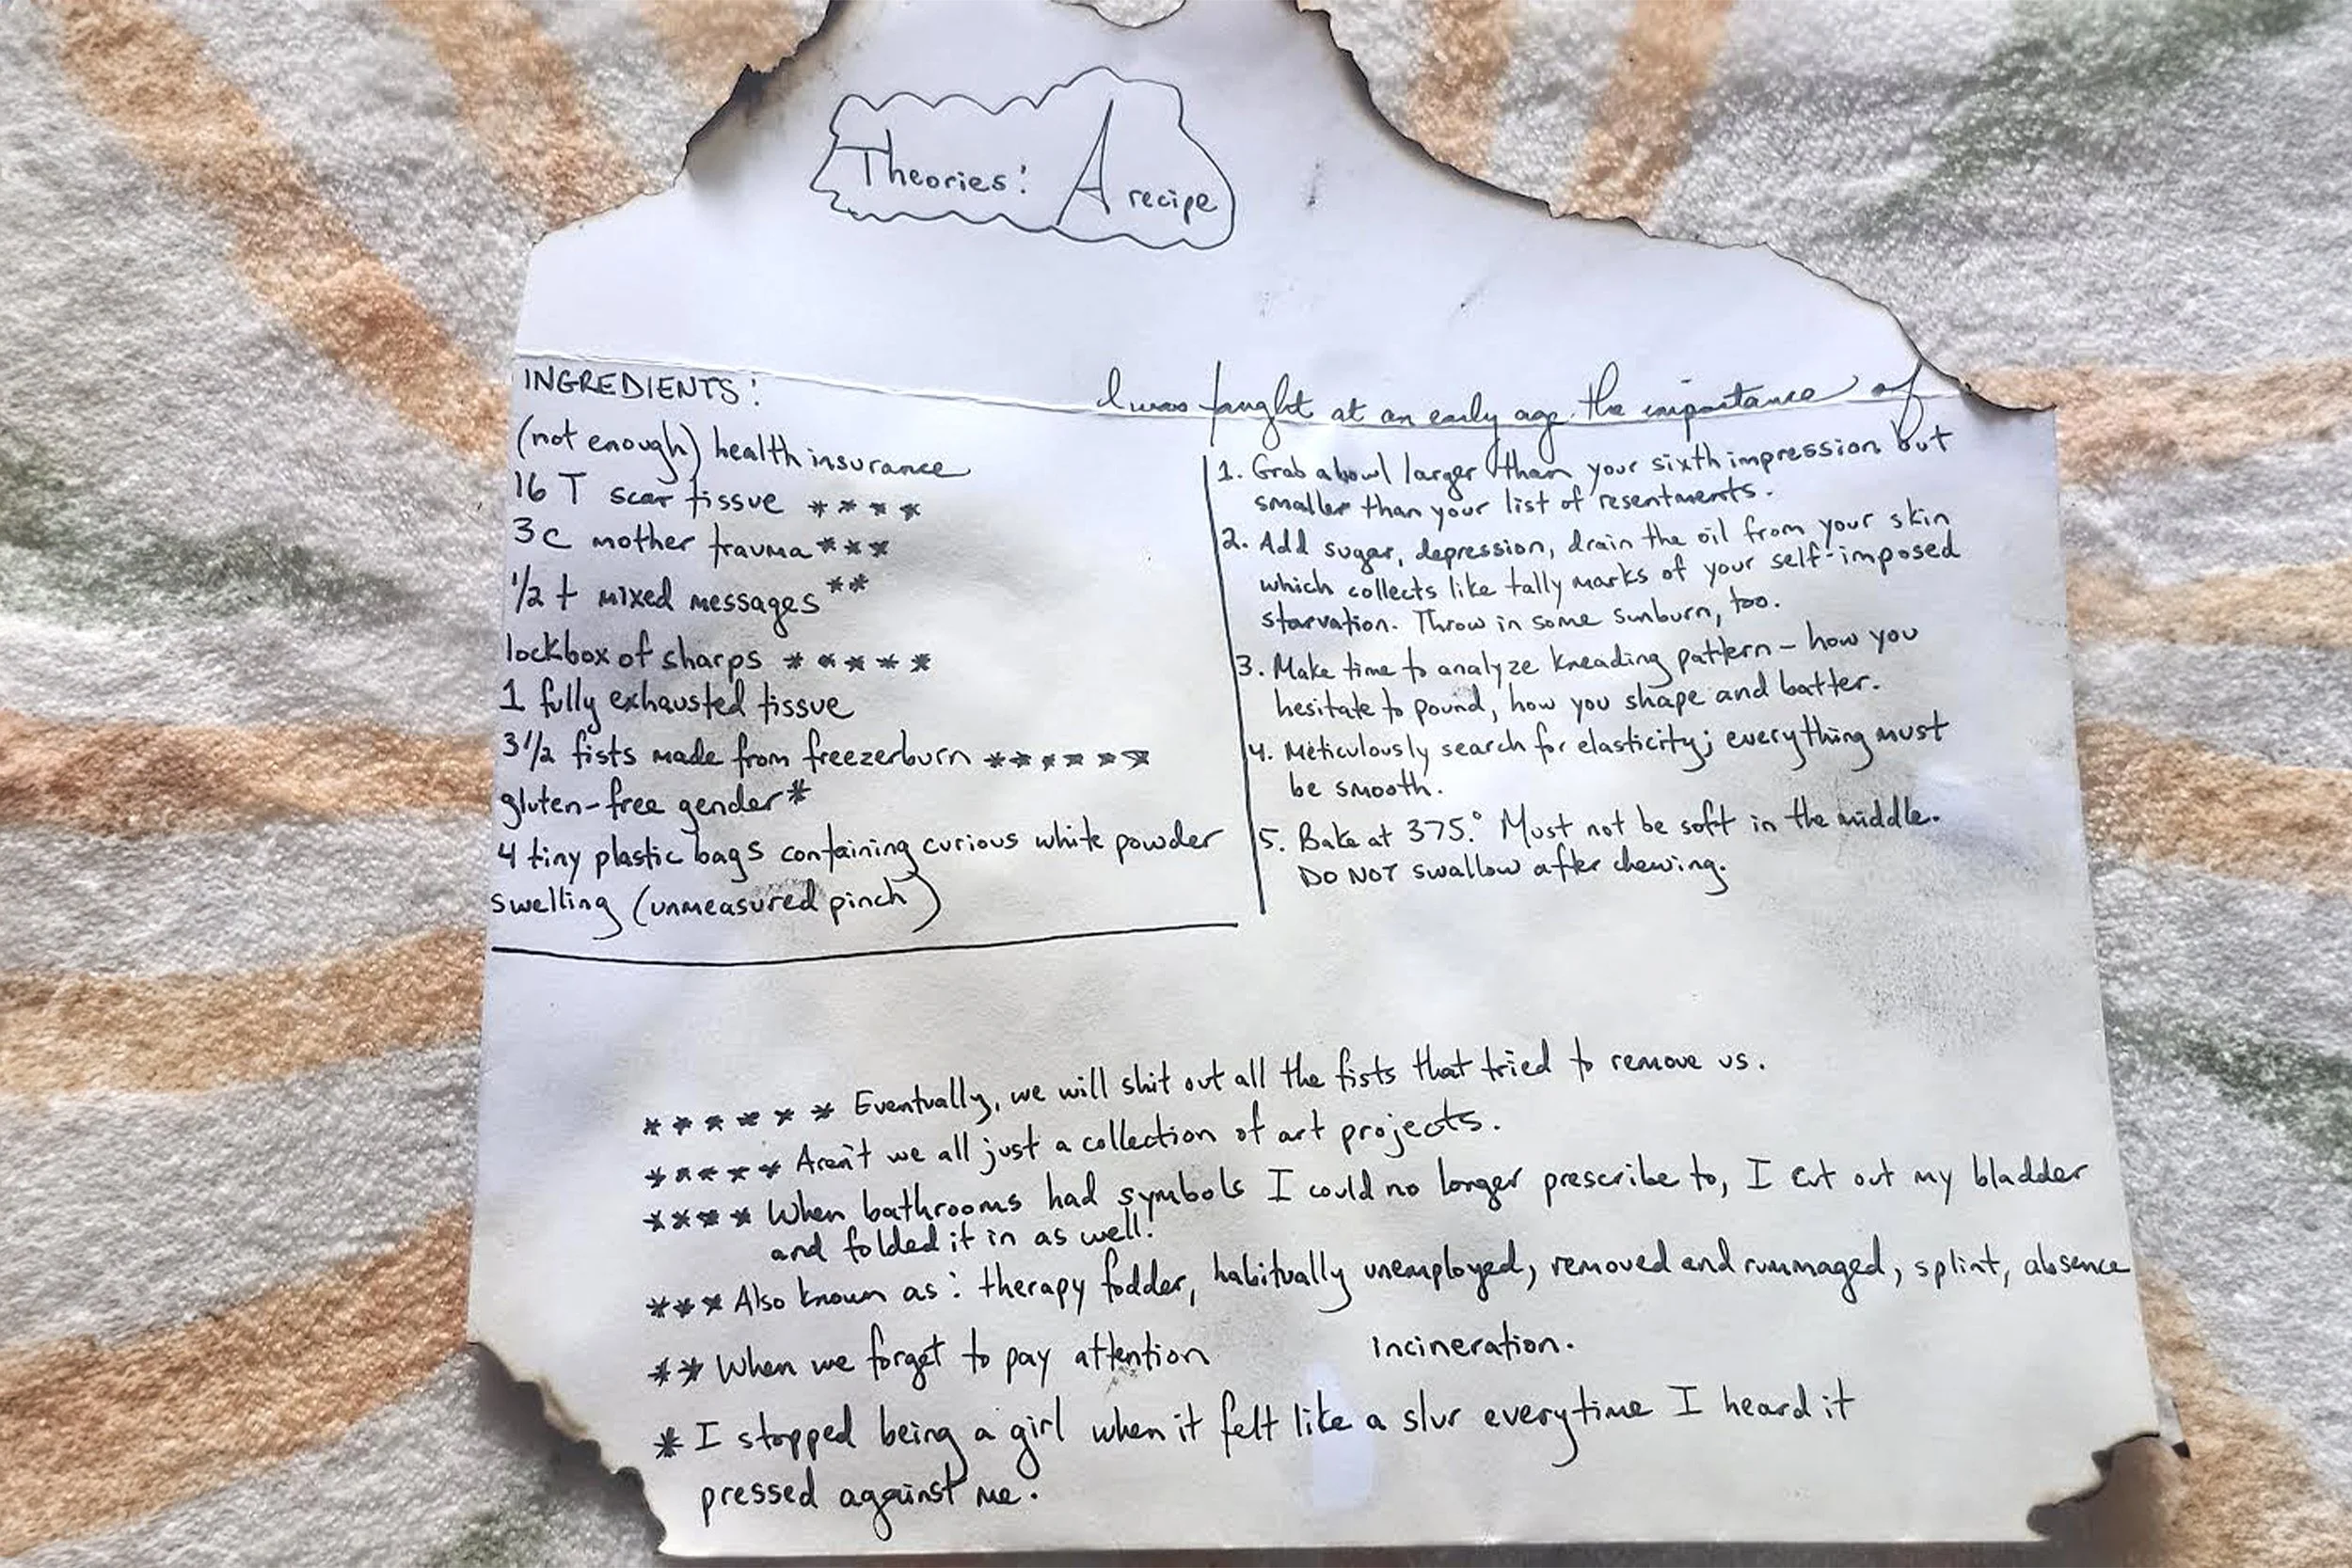 Theories: A recipe
INGREDIENTS:
(not enough) health insurance
16 T scar tissue ****
3c mother trauma ***
1/2 t mixed messages **
lockbox of sharps *****
1 fully exhausted tissue
3 1/2 fists made from freezerburn ******
gluten-free gender*
4 tiny plastic bags containing curious white powder
swelling (unmeasured pinch)
I was taught at an early age the importance of
1. Grab a bowl larger than your sixth impression but
smaller than your list of resentments.
2. Add sugar, depression, drain the oil from your skin
which collects like tally marks of your self-imposed
starvation. Throw in some sunburn, too.
3. Make time to analyze kneading pattern – how you
hesitate to pound, how you shape and batter.
4. Meticulously search for elasticity; everything must
be smooth.
5. Bake at 375.° Must not be soft in the middle.
DO NOT swallow after chewing.
****** Eventually, we will shit out all the fists that tried to remove us.
***** Aren't we all just a collection of art projects.
**** When bathrooms had symbols I could no longer prescribe to, I cut out my bladder
and folded it in as well!
*** Also known as: therapy fodder, habitually unemployed, removed and rummaged, splint, absence
** When we forget to pay attention incineration.
* I stopped being a girl when it felt like a slur everytime I heard it
pressed against me.